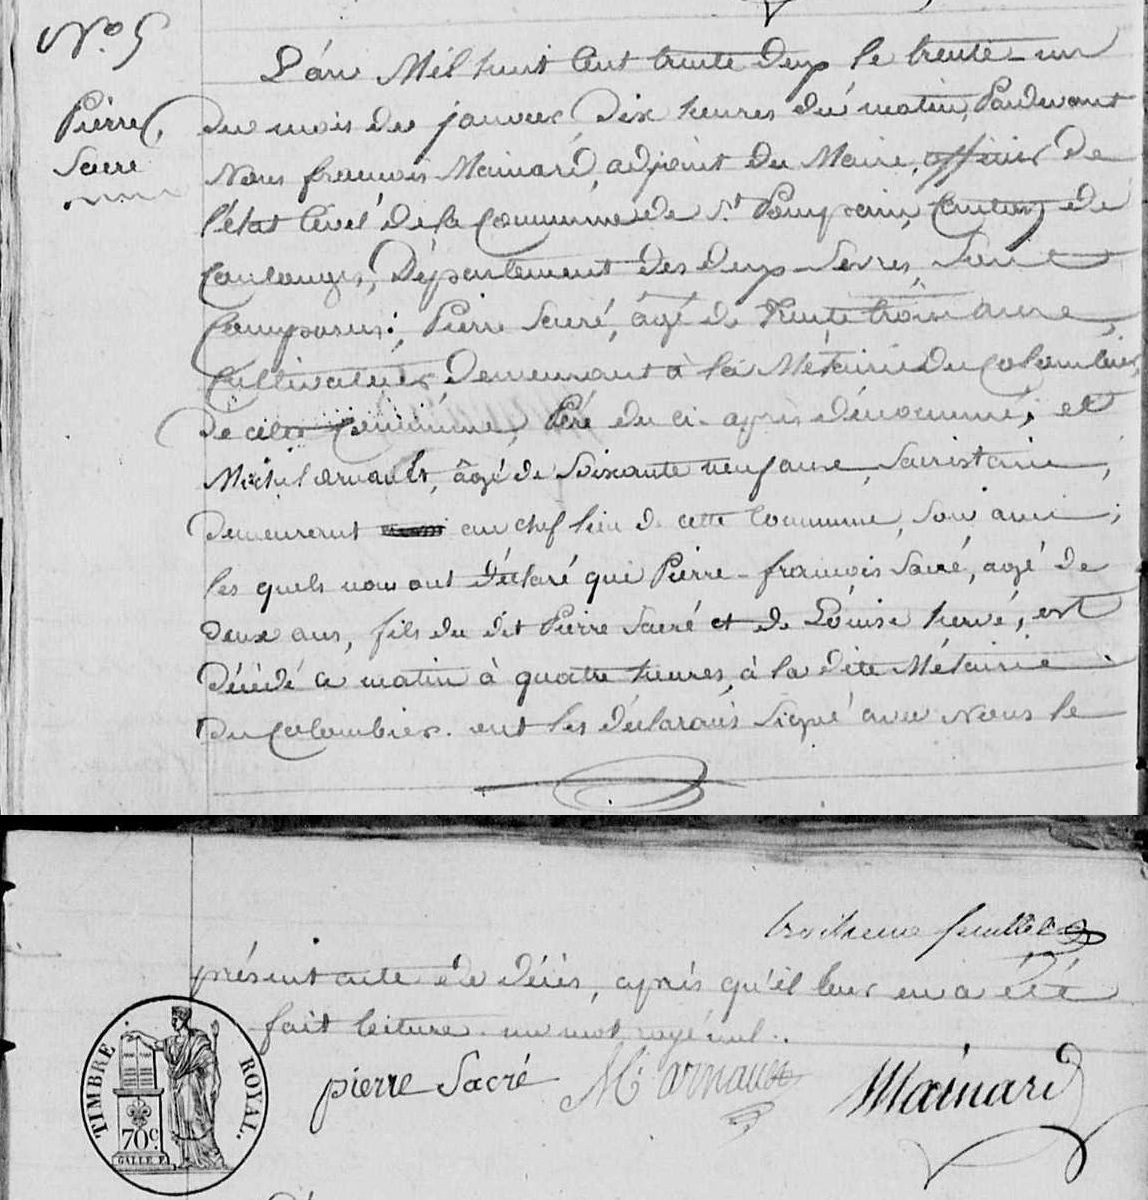 N.º 5
Pierre
Sacré
L'an Mil huit Cent trente deux le trente-un
du mois de janvier Dix heures du matin, Pardevant
Nous françois Mainard, adjoint du Maire, officier de
l'état Civil de la Commune de St Pompain, Canton de
Coulonges, Département des deux-Sèvres, Sont
Comparus: Pierre Sacré, âgé de trente trois ans,
Cultivateur demeurant à la Métairie du Colombier,
de cette Commune, Père du ci-après dénommé; et
Michel arnault, âgé de Soixante neuf ans, Sacristain,
demeurant au chef lieu de cette Commune, son ami;
les quels nous ont déclaré que Pierre-françois Sacré, agé de
deux ans, fils du dit Pierre Sacré et de Louise hervé, est
Décédé ce matin à quatre heures, à la dite Métairie
du Colombier. ont les déclarans Signé avec Nous le
troisieme feuillet
présent acte de décès, après qu'il leur en a été
fait lecture. un mot rayé nul.
pierre Sacré M. arnault Mainard
TIMBRE ROYAL.
70c.
GALLE F.